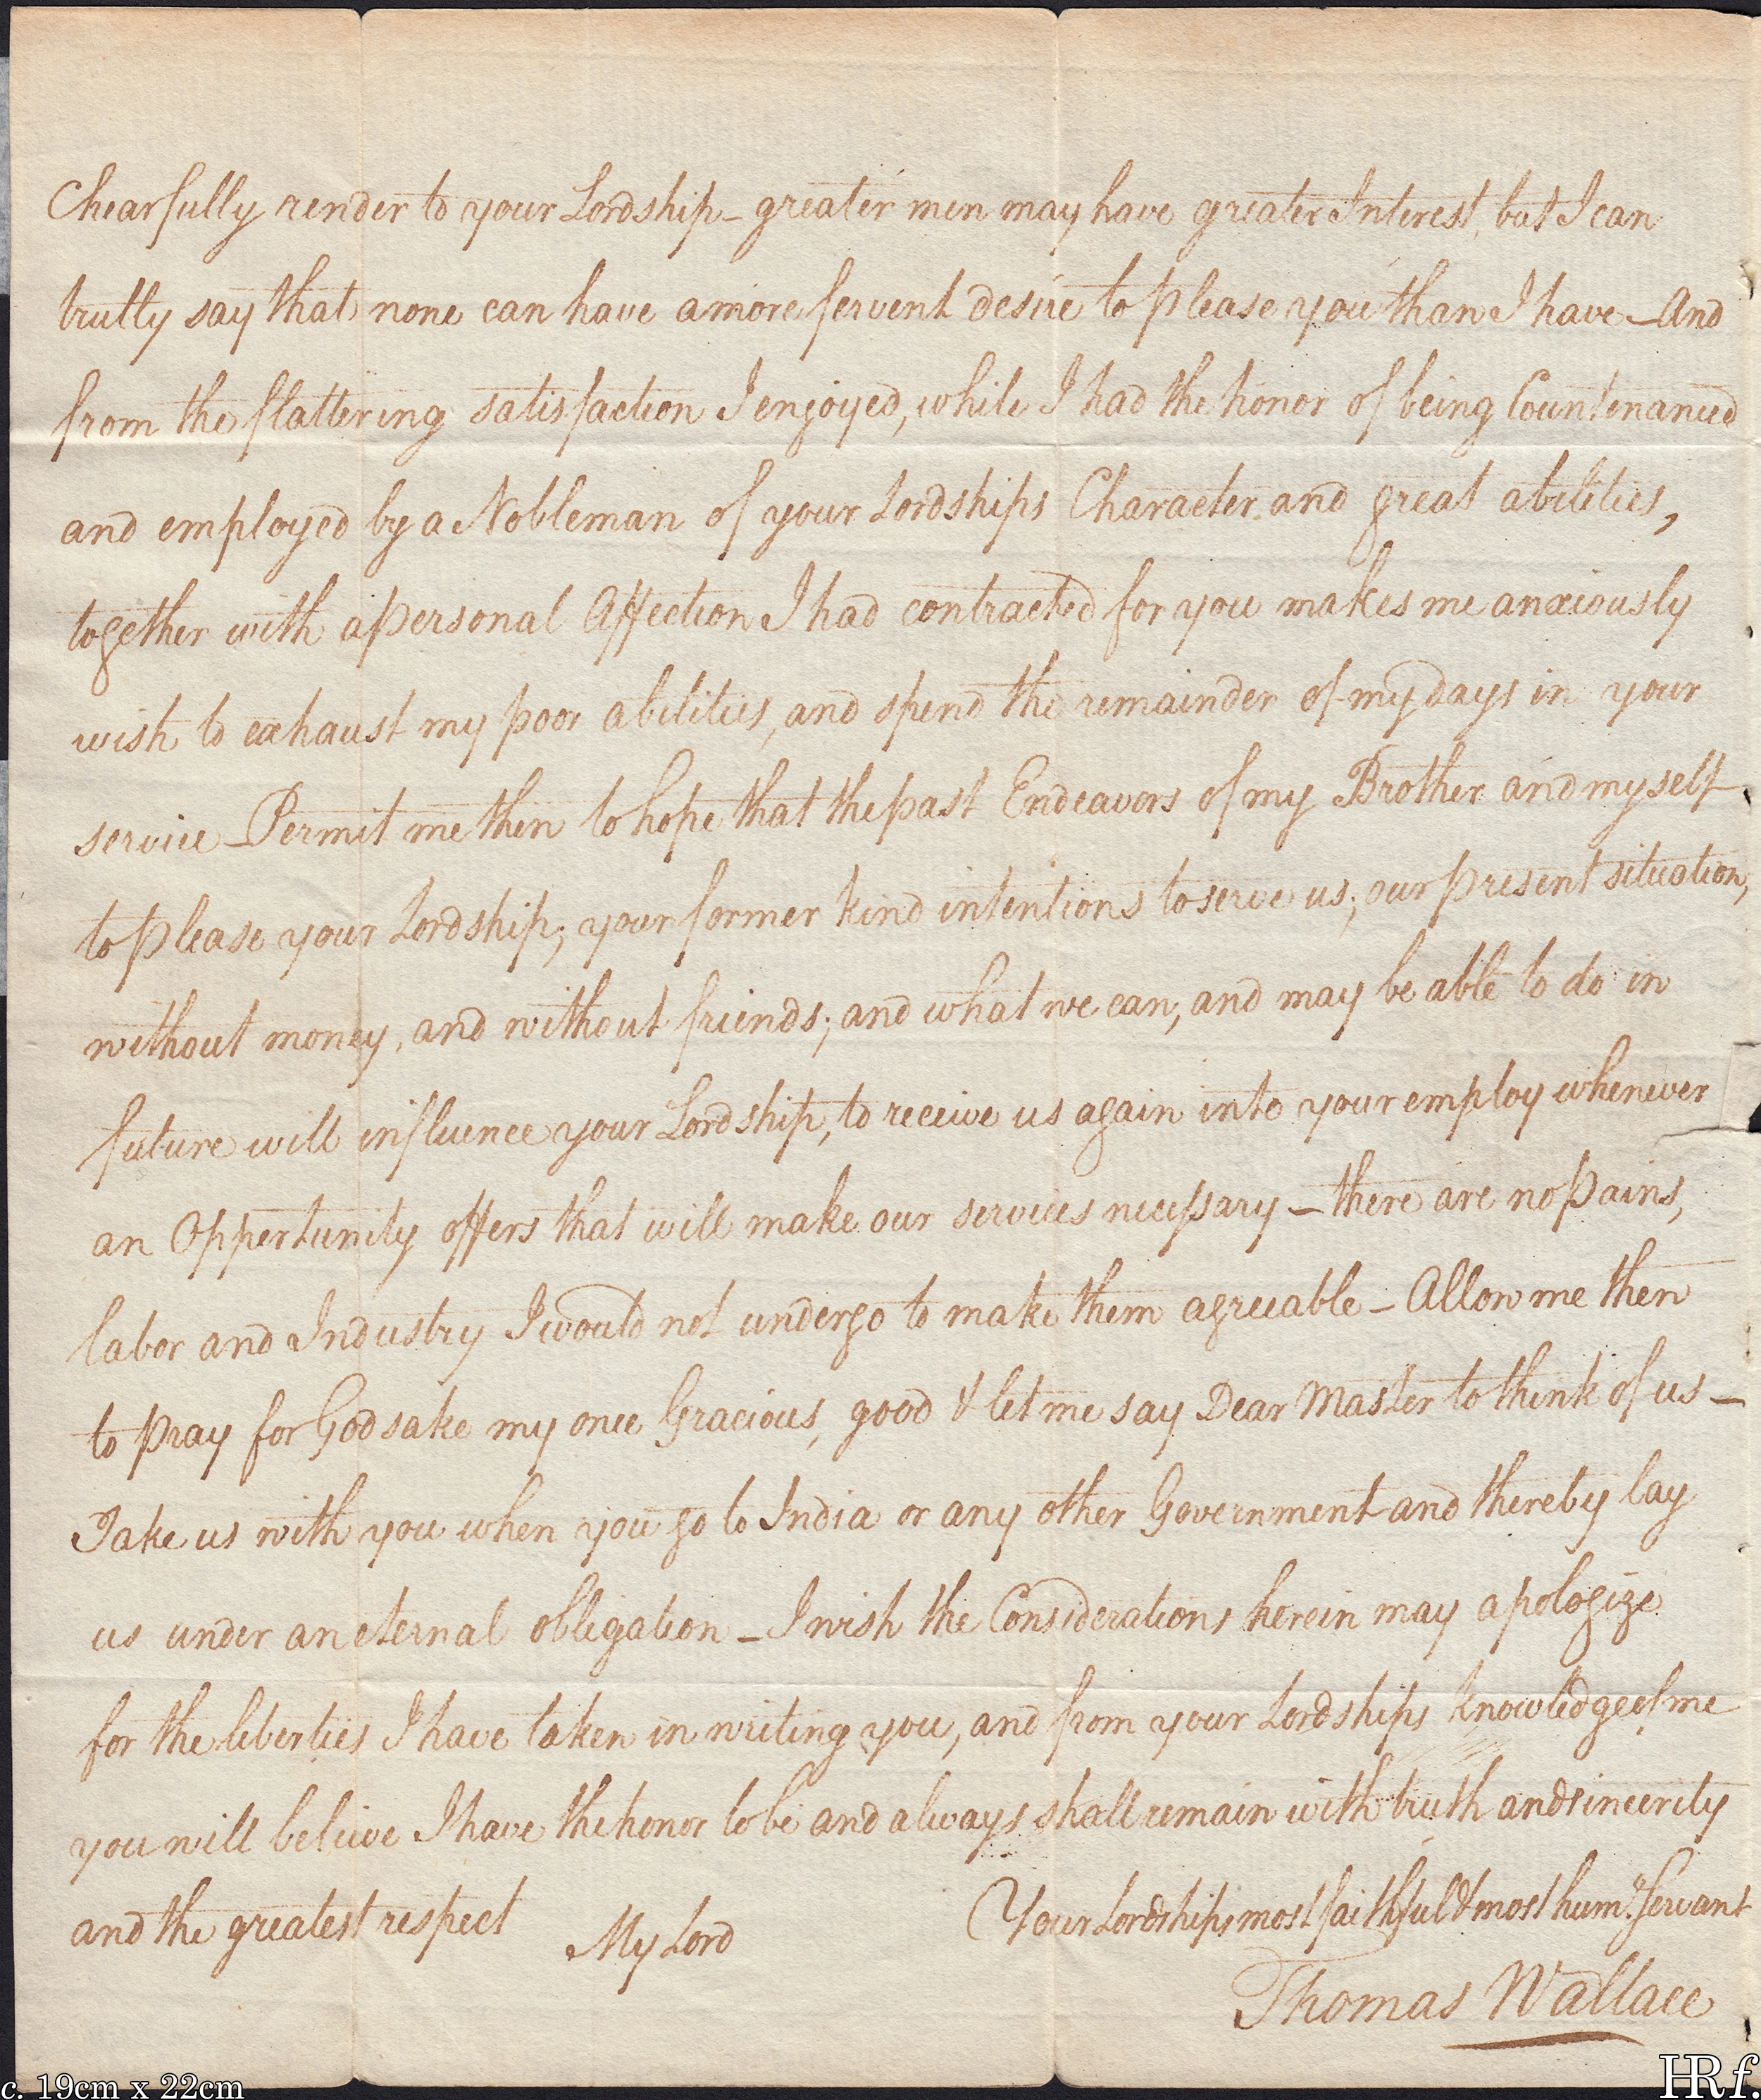 Chearfully render to your Lordship - greater men may have greater Interest, but I can
trully say that none can have a more fervent desire to please you than I have - And
from the flattering satisfaction I enjoyed, while I had the honor of being Countenanced
and employed by a Nobleman of your Lordships Character and great abilities,
together with a personal Affection I had contracted for you makes me anxiously
wish to exhaust my poor abilities, and spend the remainder of my days in your
service - Permit me then to hope that the past Endeavors of my Brother and myself
to please your Lordship; your former kind intentions to serve us; our present situation,
without money, and without friends; and what we can, and may be able to do in
future will influence your Lordship, to receive us again into your employ whenever
an Oppertunity offers that will make our services necessary - there are no pains,
labor and Industry I would not undergo to make them agreeable - Allow me then
to pray for God sake my once Gracious, good & let me say Dear Master to think of us -
Take us with you when you go to India or any other Government and thereby lay
us under an eternal obligation - I wish the Considerations herein may apologize
for the liberties I have taken in writing you, and from your Lordships knowledge of me
you will believe I have the honor to be and always shall remain with truth and sincerity
and the greatest respect My Lord Your Lordships most faithful & most hum. Servant
Thomas Wallace
c. 19cm x 22cm
HRf.